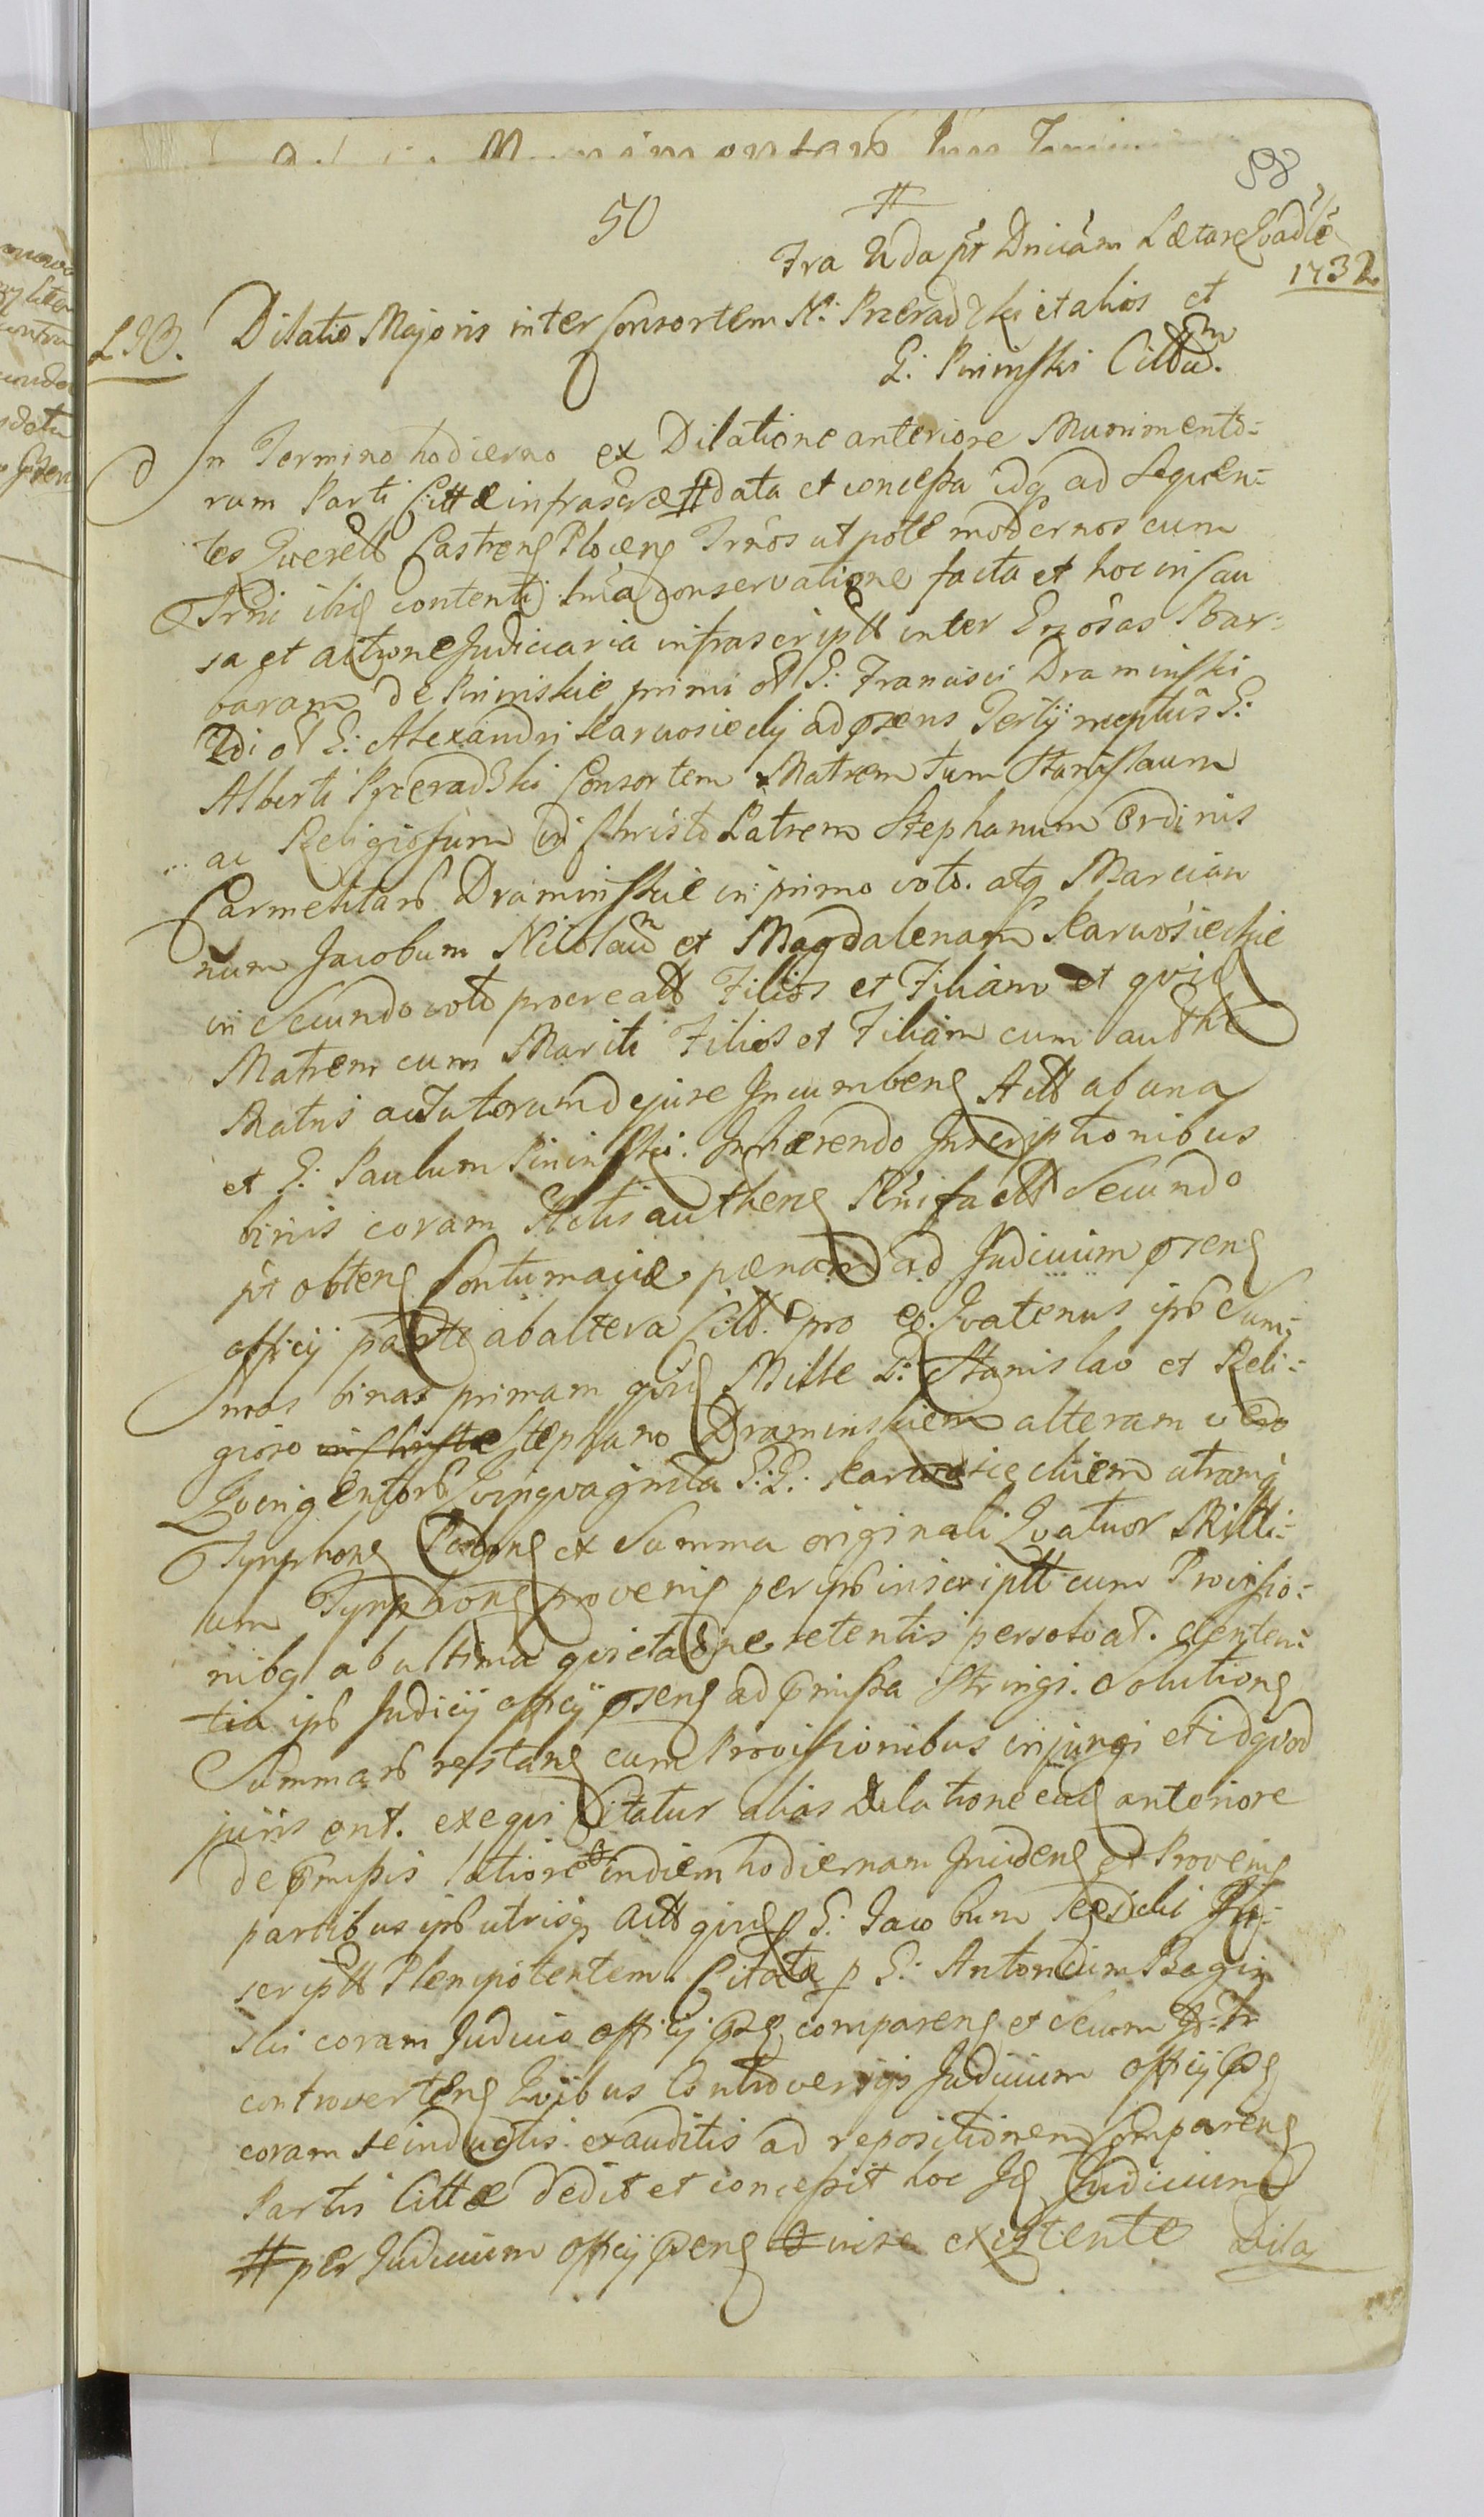 58
50
#
Fra 2da pt Dnicam Lætare Qvadle
1732
Dilatio Majoris inter Consortem N: Przeradzki et alios et
G: Pininski Cittum.
In Termino hodierno ex Dilatione anteriore Munimento-
rum Parti Cittæ infrascræ # data et concessa idq ad sequen-
tes Querell Castrens Plocens Trnos utpote modernos cum
Trni ibid contenti conservatione facta et hoc in cau
sa et actione Judiciaria infrascriptt inter Grosas Bar-
baram de Pininskie primi ol G: Francisci Draminski
2di ol G: Alexandri Karwosiecky ad præns Tertij nuptus G:
Alberti Przeradzki Consortem Matrem tum Stanislaum
ac Religiosum in Christo Patrem Stephanum Ordinis
Carmelitarum Draminskie in primo voto. atq Marcian
num Jacobum Nicolaum et Magdalenam Karwosieckie
in Secundo voto procreatt Filios et Filiam et qvid
Matrem cum Mariti Filios et Filiam cum authe
Matris ac Tutorum de jure Incumbens Actt ab una
et G: Paulum Pininski. Inhærendo Inscriptionibus
binis coram Actis authens factt Secundo
pt obtens Contumaciæ pœnam ad Judicium præns
officij parte ab altera Citt. pro eo. Qvatenus ipse Sum-
mas binas primam qvid Mille G: Stanislao et Reli-
gioso in Christo Stephano Draminskiem alteram vero
Qvingentorum Qvinqvaginta G:G: Karwosieckiem utramq
Tynphons Polons ex Summa originali Qvatuor Milli-
um Tynphons provenis per ipsum inscriptt cum Provisio-
nibq ab ultima qvietatione retentis persolvat. Senten-
tia ipso Judicij officij præns ad præmissa stringi. Solutions
Summarum restans cum Provisionibus injungi et id qvod
juris ent. exeqvi Citatur alias Dilatione ead anteriore
de præmissis latiore in diem hodiernam Incidens et Provenis
partibus ipsis utrisq actt qvid p G: Jacobum In-
scriptt Plenipotentem. Citata p G: Antonium Bagin
ski coram Judicio officij præns comparens et Secum
controvertens Qvibus Controversijs Judicium officij præns
coram se inductis exauditis ad repositionem Comparens
Partis Cittæ dedit et concessit hoc Id Judicium
# per Judicium officij præns existente Dila